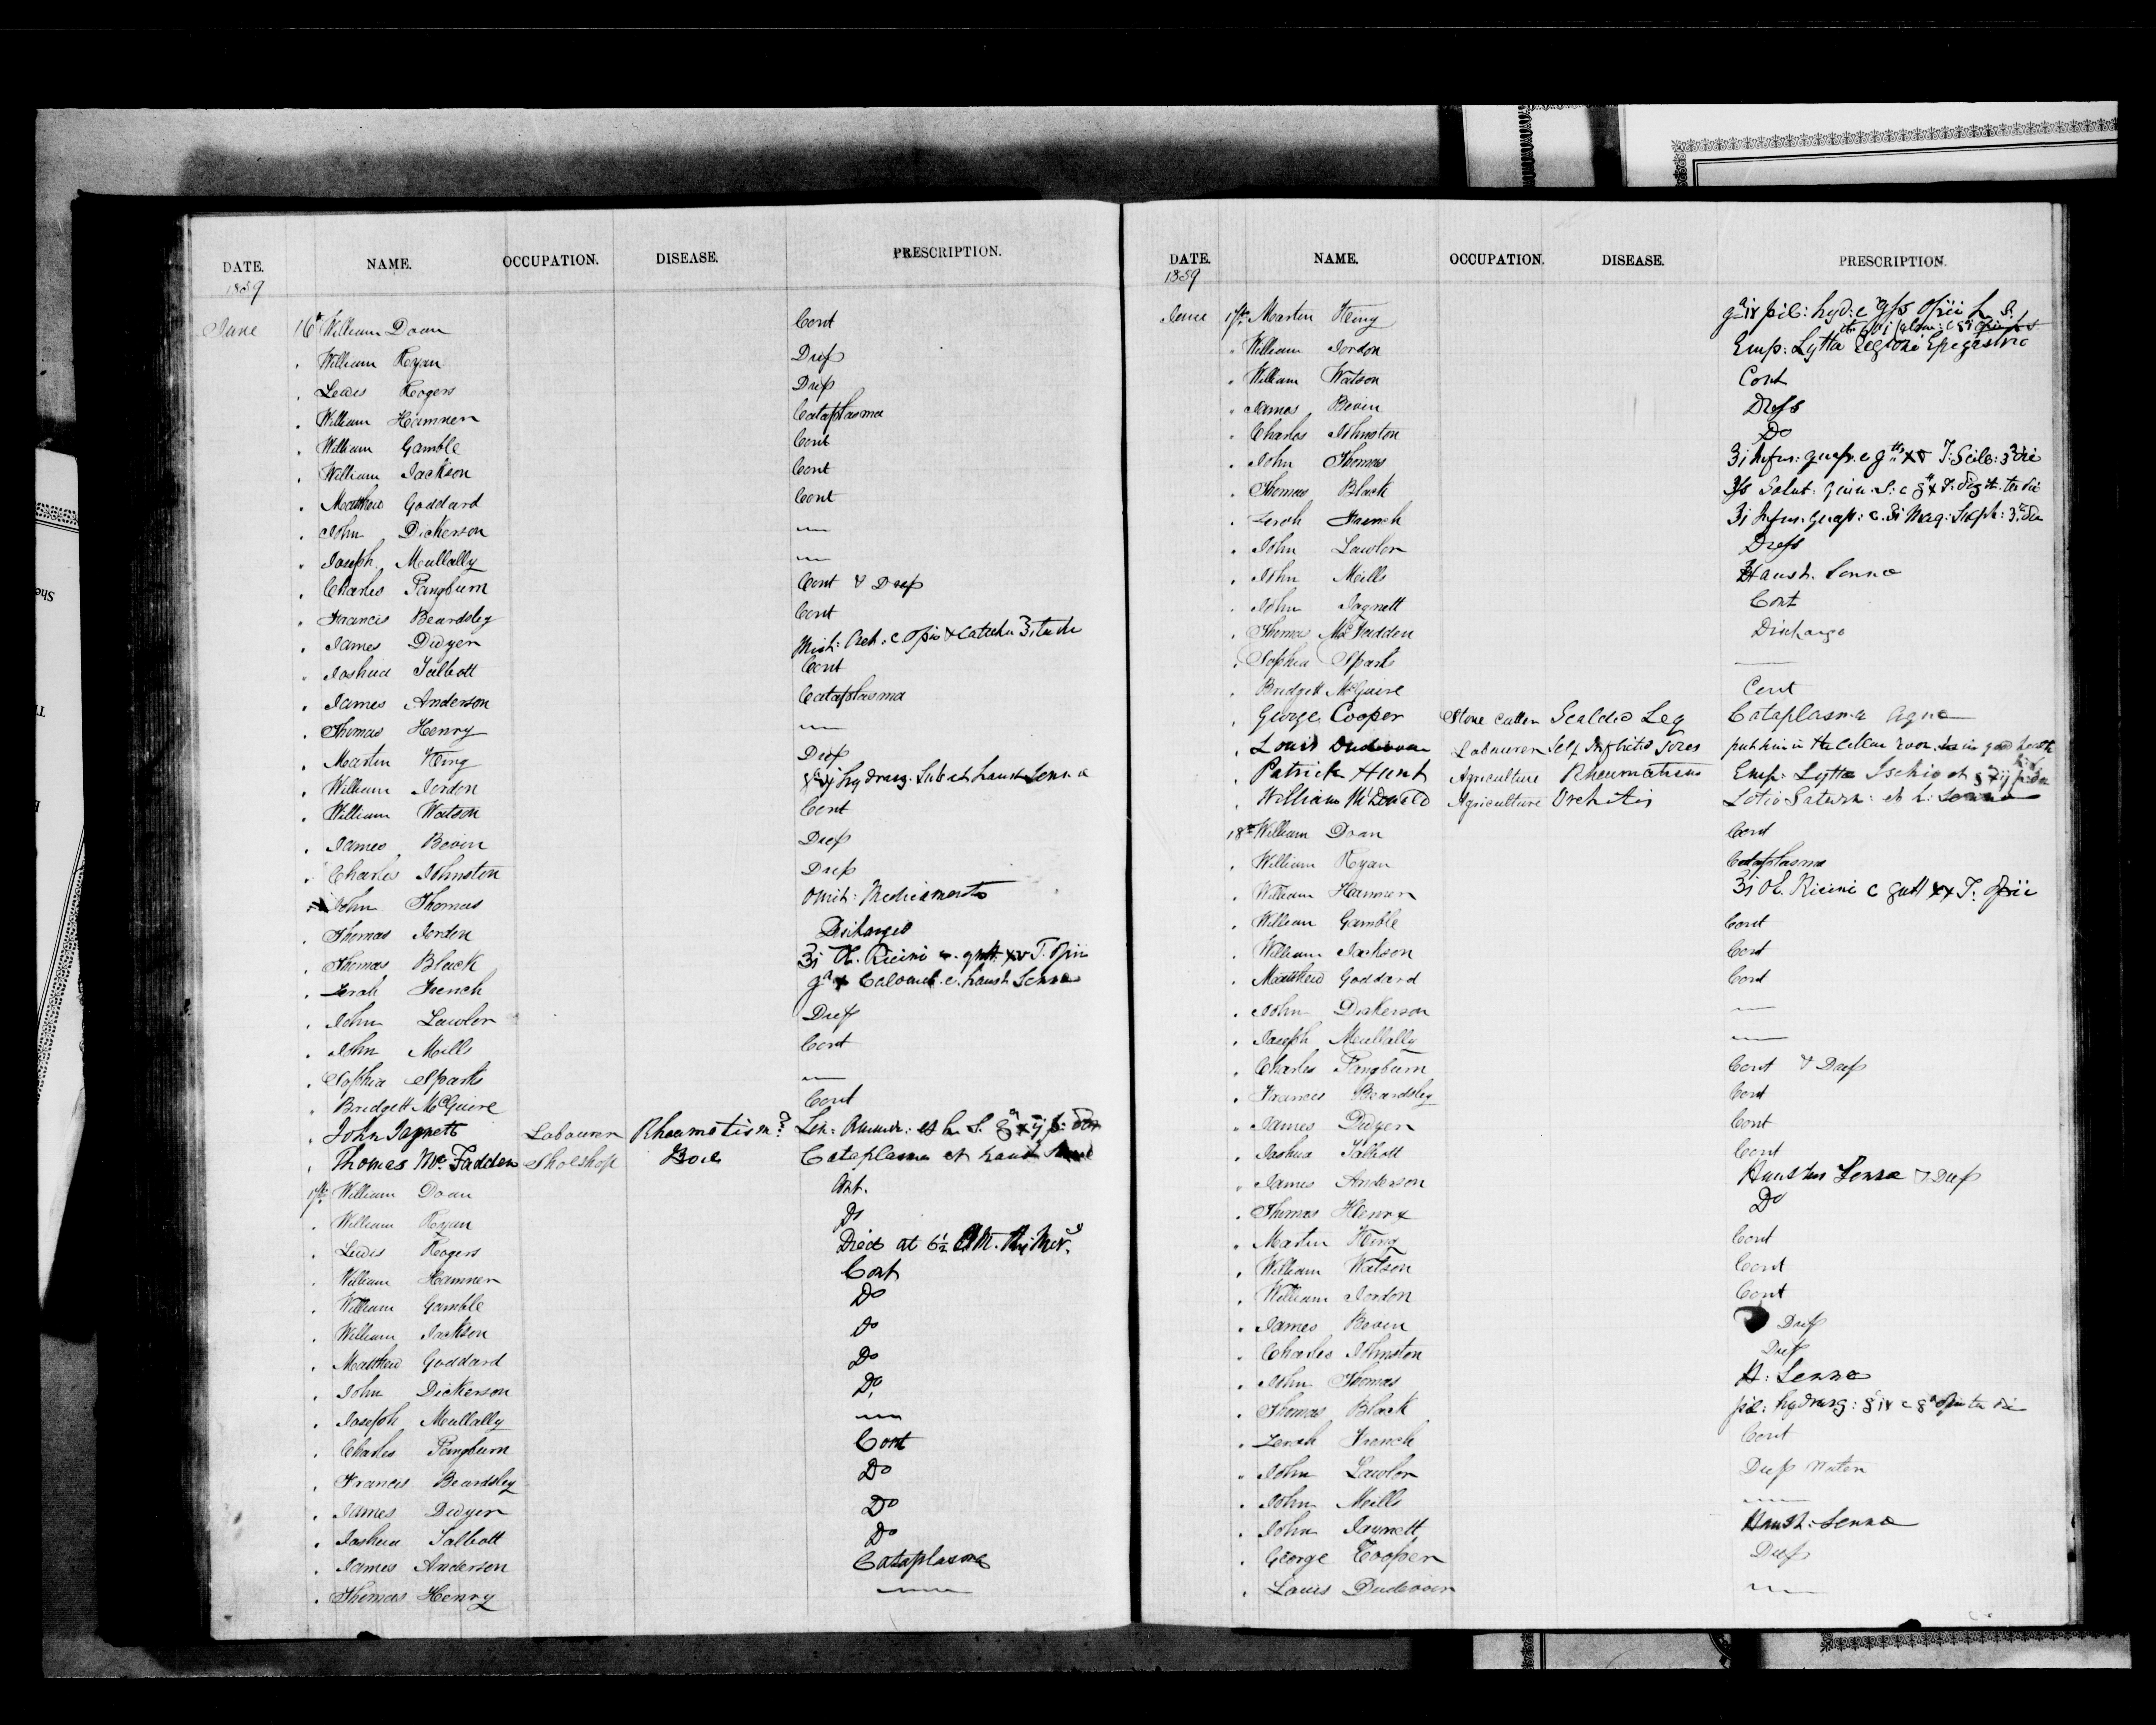 DATE. NAME. OCCUPATION. DISEASE. PRESCRIPTION.
1859
June 16th William Doan Cont
" William Ryan Dress
" Lewis Rogers Dress
" William Hamner Cataplasma
" William Gamble Cont
" William Jackson Cont
" Matthew Goddard Cont
" John Dickerson —
" Joseph Mullally —
" Charles Pangburn Cont & Dress
" Francis Beardsley Cont
" James Dwyer Mist: Cret: c opio & Catechu
" Joshua Talbott Cont
" James Anderson Cataplasma
" Thomas Henry —
" Martin King Dress
" William Jordon hydrarg. Sub et haust Senna
" William Watson Cont
" James Bovin Dress
" Charles Johnston Dress
" John Thomas Omit: Medicamento
" Thomas Jordon Discharged
" Thomas Black ʒi Ol. Ricini c. gutt. xv T. Opii
" Zerah French gr x Calomel. c. haust Senna
" John Lawlor Dress
" John Mills Cont
" Sophia Sparks —
" Bridgett McGuire Cont
" John Jagnett Labourer Rheumatism?
" Thomas Mc.Fadden Shoeshop Boil Cataplasma et haust
17th William Doan Cont.
" William Ryan Do
" Lewis Rogers Died at 6½ AM.
" William Hamner Cont
" William Gamble Do
" William Jackson Do
" Matthew Goddard Do
" John Dickerson Do
" Joseph Mullally —
" Charles Pangburn Cont
" Francis Beardsley Do
" James Dwyer Do
" Joshua Talbott Do
" James Anderson Cataplasma
" Thomas Henry —
DATE. NAME. OCCUPATION. DISEASE. PRESCRIPTION.
1859
June 17th Martin King gr iv pil: hyd: c gr ss Opii h. S.
" William Jordon Emp: Lytta Regioni Epigastric
" William Watson Cont
" James Bovin Dress
" Charles Johnston Do
" John Thomas ʒi Infus: quass. c gtt xv T: Scil:
" Thomas Black Solut: Quin. S:
" Zerah French ʒi Infus: Quass: c. ʒi Mag: Sulph:
" John Lawlor Dress
" John Mills Haust. Senna
" John Jagnett Cont
" Thomas Mc Fadden Discharge
" Sophia Sparks —
" Bridgett McGuire Cont
" George Cooper Stone Cutter Scalded Leg Cataplasma Aqua
" Louis Dudevoir Labourer Self Inflicted Sores put him in the Cellar room in good health
" Patrick Hunt Agriculture Rheumatism Emp: Lytta Ischio et
" William McDonald Agriculture Orchitis Lotio Saturn: et h: Senna
18th William Doan Cont
" William Ryan Cataplasma
" William Hamner ʒi Ol. Ricini c gutt xx T. Opii
" William Gamble Cont
" William Jackson Cont
" Matthew Goddard Cont
" John Dickerson —
" Joseph Mullally —
" Charles Pangburn Cont & Dress
" Francis Beardsley Cont
" James Dwyer Cont
" Joshua Talbott Cont
" James Anderson Haustus Senna & Dress
" Thomas Henry Do
" Martin King Cont
" William Watson Cont
" William Jordon Cont
" James Bovin Dress
" Charles Johnston Dress
" John Thomas H: Senna
" Thomas Black pil: hydrarg:
" Zerah French Cont
" John Lawlor Dress Water
" John Mills —
" John Jagnett Haust: Senna
" George Cooper Dress
" Louis Dudevoir —